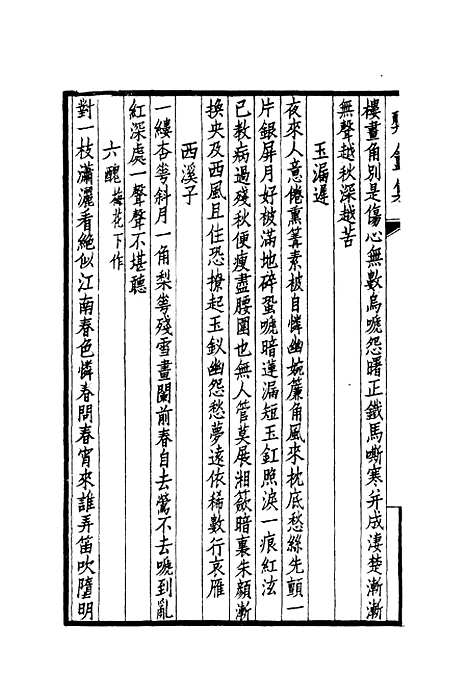 樓畫角別是傷心無數烏嗁怨曙正鐵馬嘶寒并成淒楚漸漸
無聲越秋深越苦
玉漏遲
夜來人意倦熏篝素被自憐幽婉簾角風來枕底愁絲先顫一
片銀屏月好被滿地碎蛩嗁暗蓮漏短玉釭照淚一痕紅泫
已教病過殘秋便瘦盡腰圍也無人管莫展湘箋暗裏朱顏漸
換央及西風且住恐撩起玉釵幽怨愁夢遠依稀數行哀雁
西溪子
一縷杏等斜月一角梨等殘雪畫闌前春自去鶯不去嗁到亂
紅深處一聲聲不堪聽
六醜梅花下作
對一枝瀟灑看絕似江南春色憐春問春宵來誰弄笛吹墮明